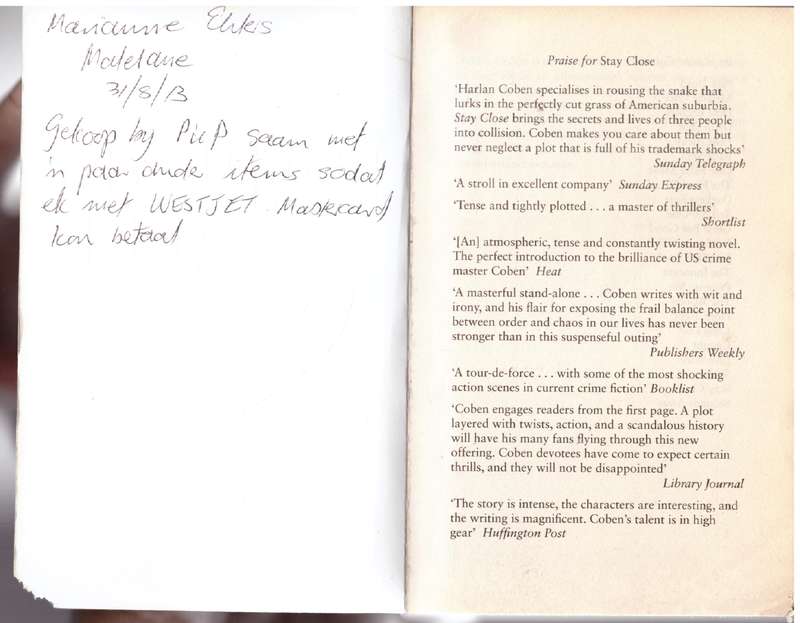 Marianne
31/8/13
Gekoop by PicP saam met
'n paar ander items sodat
ek met WESTJET Mastercard
kon betaal
Praise for Stay Close
‘Harlan Coben specialises in rousing the snake that
lurks in the perfectly cut grass of American suburbia.
Stay Close brings the secrets and lives of three people
into collision. Coben makes you care about them but
never neglect a plot that is full of his trademark shocks’
Sunday Telegraph
‘A stroll in excellent company’ Sunday Express
‘Tense and tightly plotted . . . a master of thrillers’
Shortlist
‘[An] atmospheric, tense and constantly twisting novel.
The perfect introduction to the brilliance of US crime
master Coben’ Heat
‘A masterful stand-alone . . . Coben writes with wit and
irony, and his flair for exposing the frail balance point
between order and chaos in our lives has never been
stronger than in this suspenseful outing’
Publishers Weekly
‘A tour-de-force . . . with some of the most shocking
action scenes in current crime fiction’ Booklist
‘Coben engages readers from the first page. A plot
layered with twists, action, and a scandalous history
will have his many fans flying through this new
offering. Coben devotees have come to expect certain
thrills, and they will not be disappointed’
Library Journal
‘The story is intense, the characters are interesting, and
the writing is magnificent. Coben’s talent is in high
gear’ Huffington Post